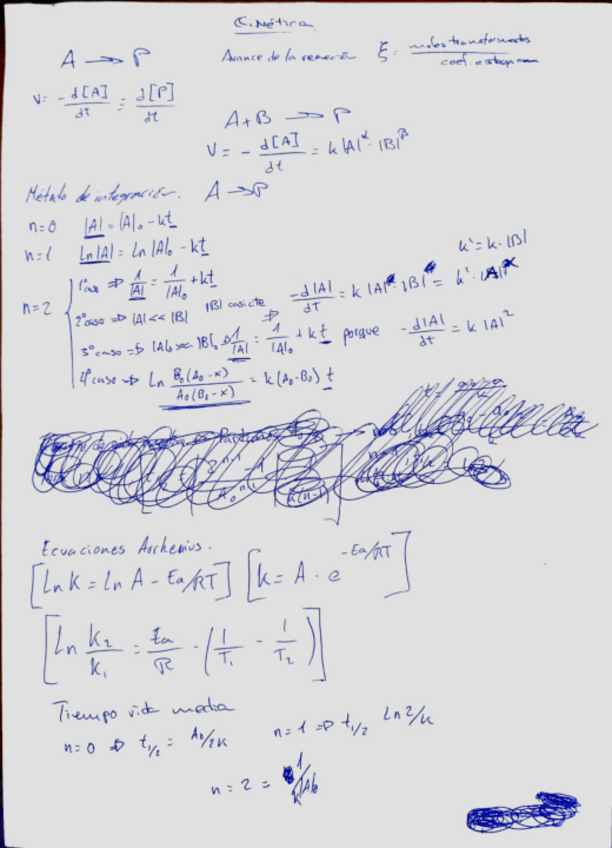 Cinética
A → P
Avance de la reacción ξ = moles transformados / coef. estequiom
V = -d[A]/dT = d[P]/dt
A + B → P
V = - d[A]/dt = k |A|^α · |B|^β
Método de integración. A → P
n=0 |A| = |A|₀ - kt
n=1 Ln|A| = Ln|A|₀ - kt
k' = k · |B|
n=2
1º caso ⇒ 1/|A| = 1/|A|₀ + kt
2º caso ⇒ |A| << |B| |B| casi cte ⇒ -d|A|/dT = k |A| · |B| = k' · |A|^α
3º caso ⇒ |A|₀ ≈ |B|₀ ⇒ 1/|A| = 1/|A|₀ + kt porque -d|A|/dt = k |A|²
4º caso ⇒ Ln B₀(A₀-x)/A₀(B₀-x) = k(A₀-B₀) t
Ecuaciones Arrhenius.
[Ln K = ln A - Ea/RT] [k = A · e^(-Ea/RT)]
[Ln K₂/K₁ = Ea/R - (1/T₁ - 1/T₂)]
Tiempo vida media
n=0 ⇒ t₁/₂ = A₀/2K n=1 ⇒ t₁/₂ Ln2/K
n=2 = 1/K|A|₀